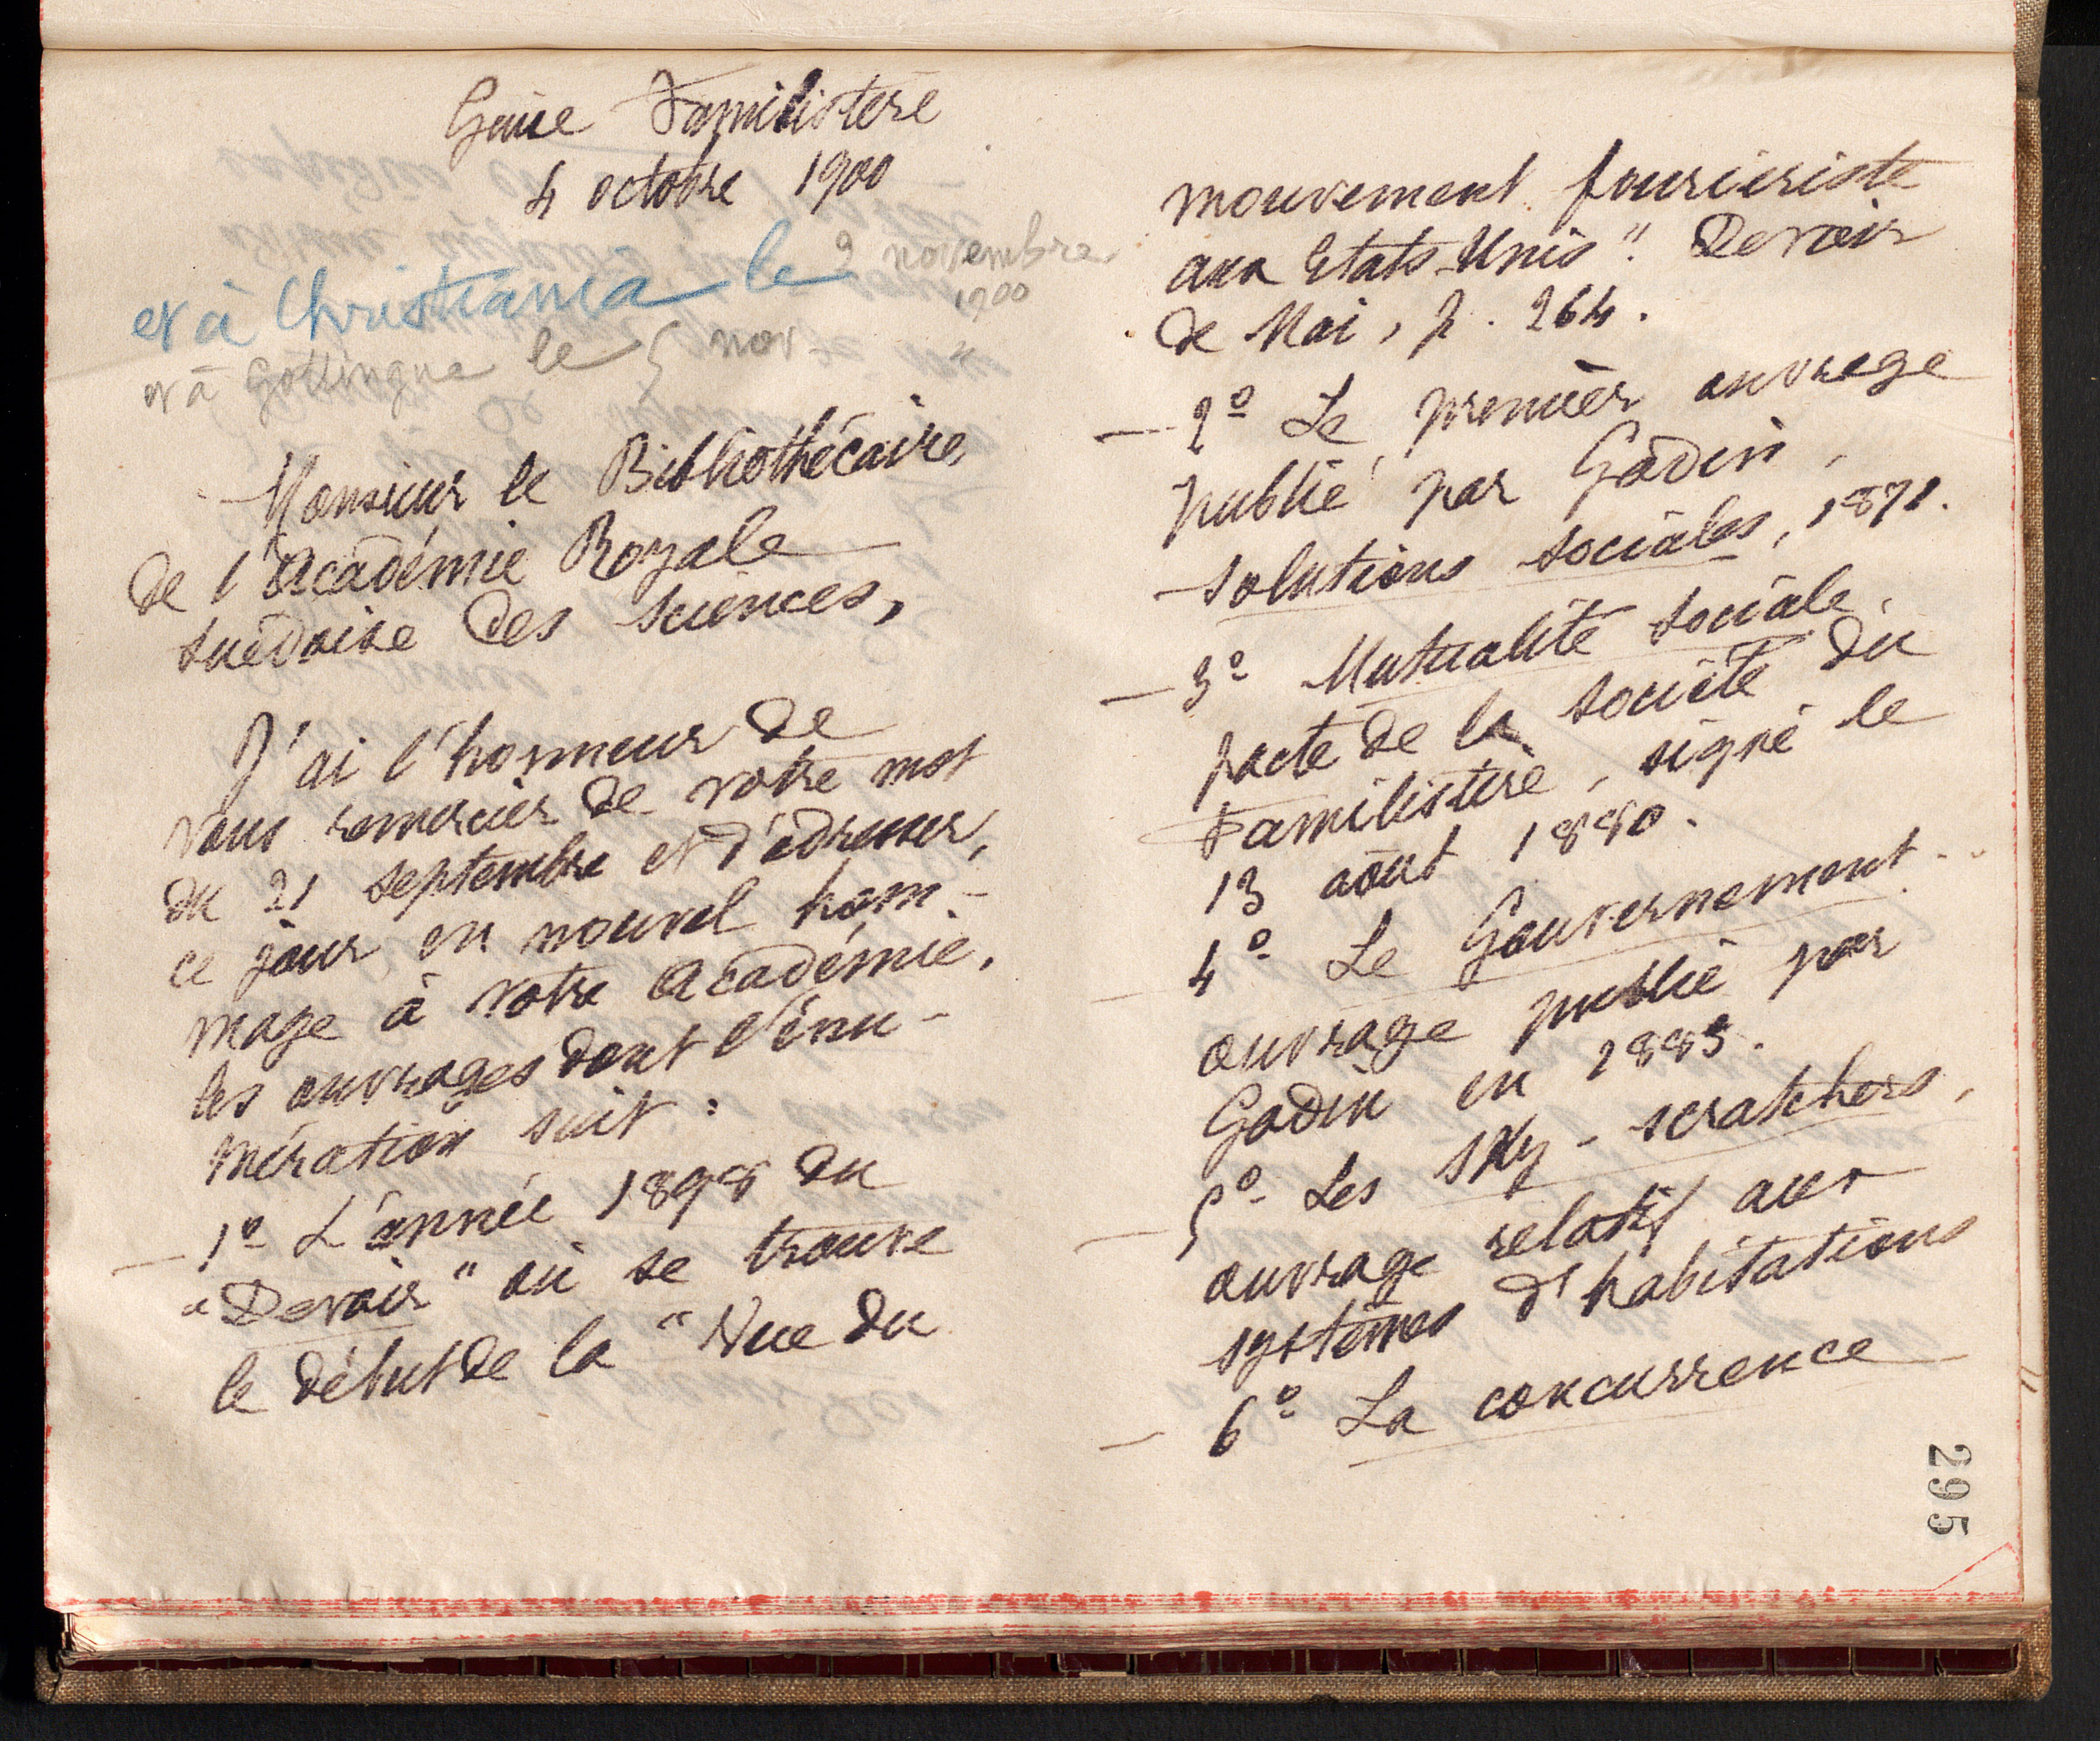 Guise Familistère
4 octobre 1900
et à Christiania le 2 novembre
1900
et à Gottingue le 5 nov. "
Monsieur le Bibliothécaire
de l'Académie Royale
suédoise des sciences,
J'ai l'honneur de
vous remercier de votre mot
du 21 septembre et d'adresser,
ce jour en nouvel hom-
mage à votre Académie,
les ouvrages dont l'énu-
mération suit :
— 1º L'année 1898 du
"Devoir" où se trouve
le début de la "Vue du
mouvement fouriériste
aux Etats-Unis". Devoir
de Mai, p. 264.
— 2º Le premier ouvrage
publié par Godin,
Solutions sociales, 1871.
— 3º Mutualité sociale,
pacte de la société du
Familistère, signé le
13 août 1880.
— 4º Le Gouvernement
ouvrage publié par
Godin en 1883.
— 5º Les sky-scratchers,
ouvrage relatif aux
systèmes d'habitations
— 6º La concurrence
295